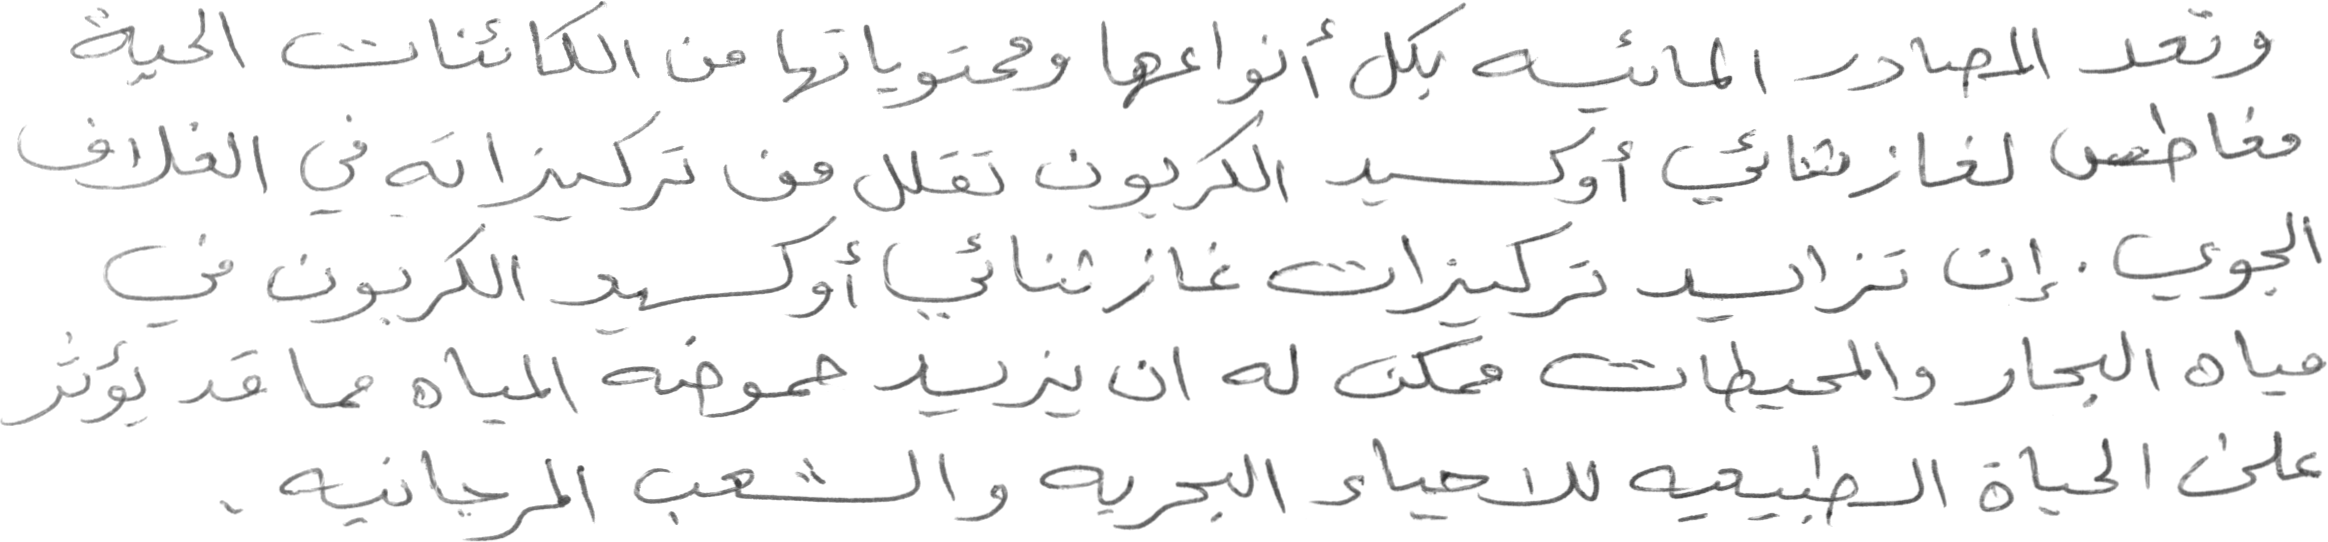 وتعد المصادر المائيه بكل أنواعها ومحتوياتها من الكائنات الحية
مغاطس لغاز ثنائي أوكسيد الكربون تقلل من تركيزاته في الغلاف
الجوي . إن تزايد تركيزات غاز ثنائي أوكسيد الكربون في
مياه البحار والمحيطات ممكن له ان يزيد حموضه المياه مما قد يؤثر
على الحياة الطبيعيه للاحياء البحريه والشعب المرجانيه .